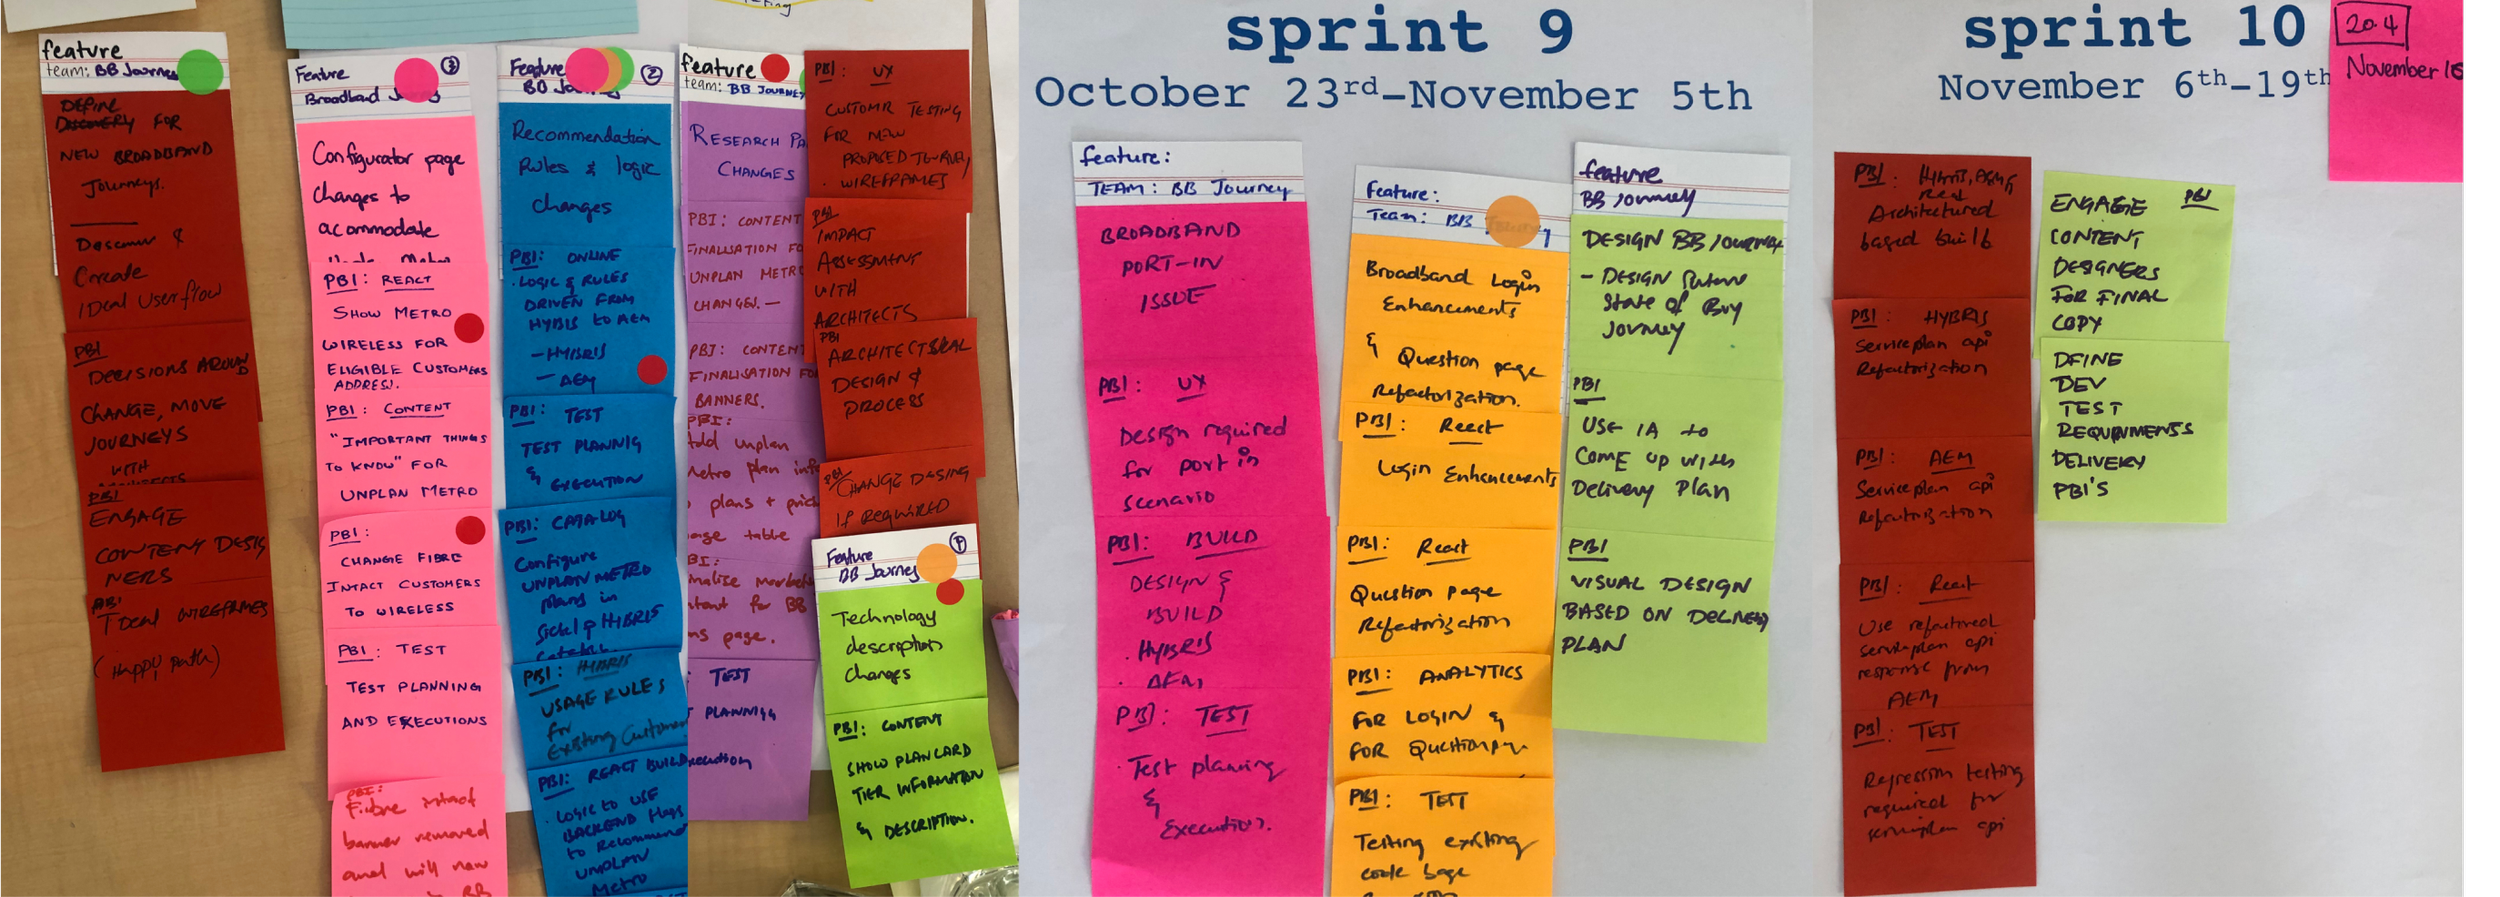 feature
team: BB Journey
DEFINE
DISCOVERY FOR
NEW BROADBAND
Journeys.
Discover &
Create
IDeal Userflow
PBI
DECISIONS AROUND
CHANGE, MOVE
JOURNEYS
WITH
PBI
ENGAGE
CONTENT DESIG
NERS
PBI
IDeal WIREFRAMES
(Happy path)
Feature ③
Broadband
Configurator page
changes to
accommodate
PBI: REACT
SHOW METRO
WIRELESS FOR
ELIGIBLE CUSTOMERS
ADDRESS.
PBI: CONTENT
"IMPORTANT THINGS
TO KNOW" FOR
UNPLAN METRO
PBI:
CHANGE FIBRE
INTACT CUSTOMERS
TO WIRELESS
PBI: TEST
TEST PLANNING
AND EXECUTIONS
PBI:
Fibre intact
banner removed
and will now
BB
Feature ②
Recommendation
Rules & logic
changes
PBI: ONLINE
·LOGIC & RULES
DRIVEN FROM
HYBIS to AEM
-HYBRIS
- AEM
PBI: TEST
TEST PLANNIG
&
EXECUTION
PBI: CATALOG
Configure
UNPLAN METRO
plans in
HYBRIS
PBI: HYBRIS
USAGE RULES
for
Existing Customer
PBI: REACT BUILD
· LOGIC to USE
BACKEND flags
to Recommend
UNPLAN
Metro
feature
team: BB JOURNEY
RESEARCH PA
CHANGES
PBI: CONTENT
FINALISATION FO
UNPLAN METRO
CHANGES.—
PBI: CONTENT
FINALISATION FO
BANNERS.
PBI:
Add unplan
Metro plan info
plans + price
page table
BI:
for BB
ns page.
: TEST
T PLANNIG
xecution
PBI: UX
CUSTOMR TESTING
FOR NEW
PROPOSED JOURNEY
· WIREFRAMES
PBI
IMPACT
ASSESSMENT
WITH
ARCHITECTS
PBI
ARCHITECTURAL
DESIGN &
PROCESS
PBI
CHANGE DESING
If REQUIRED
Feature
BB Journey
Technology
description
changes
PBI: CONTENT
SHOW PLANCARD
TIER INFORMATION
& DESCRIPTION.
sprint 9
October 23rd-November 5th
feature:
TEAM: BB Journey
BROADBAND
PORT-IN
ISSUE
PBI: UX
Design required
for port in
scenario
PBI: BUILD
DESIGN &
BUILD
· HYBRIS
· AEM
PBI: TEST
· Test planing
&
Execution.
Feature:
Team: BB
Broadband Login
Enhancements
& Question page
Refactorization.
PBI: React
Login Enhancements
PBI: React
Question page
Refactorization
PBI: ANALYTICS
FOR LOGIN &
FOR Question
PBI: TEST
Testing existing
code base
feature
BB Journey
DESIGN BB JOURNEY
- DESIGN future
State of Buy
Journey
PBI
USE IA to
COME UP with
Delivery Plan
PBI
VISUAL DESIGN
BASED ON DELIVERY
PLAN
sprint 10
November 6th-19th
20.4
November 16
PBI: Hybris, AEM &
React
Architectured
based build
PBI: HYBRIS
Serviceplan api
Refactorization
PBI: AEM
Serviceplan api
Refactorization
PBI: React
Use refactored
serviceplan api
response from
AEM
PBI: TEST
Regression testing
required for
serviceplan api
ENGAGE PBI
CONTENT
DESIGNERS
FOR FINAL
COPY
DFINE
DEV
TEST
REQUIRMENTS
DELIVERY
PBI'S